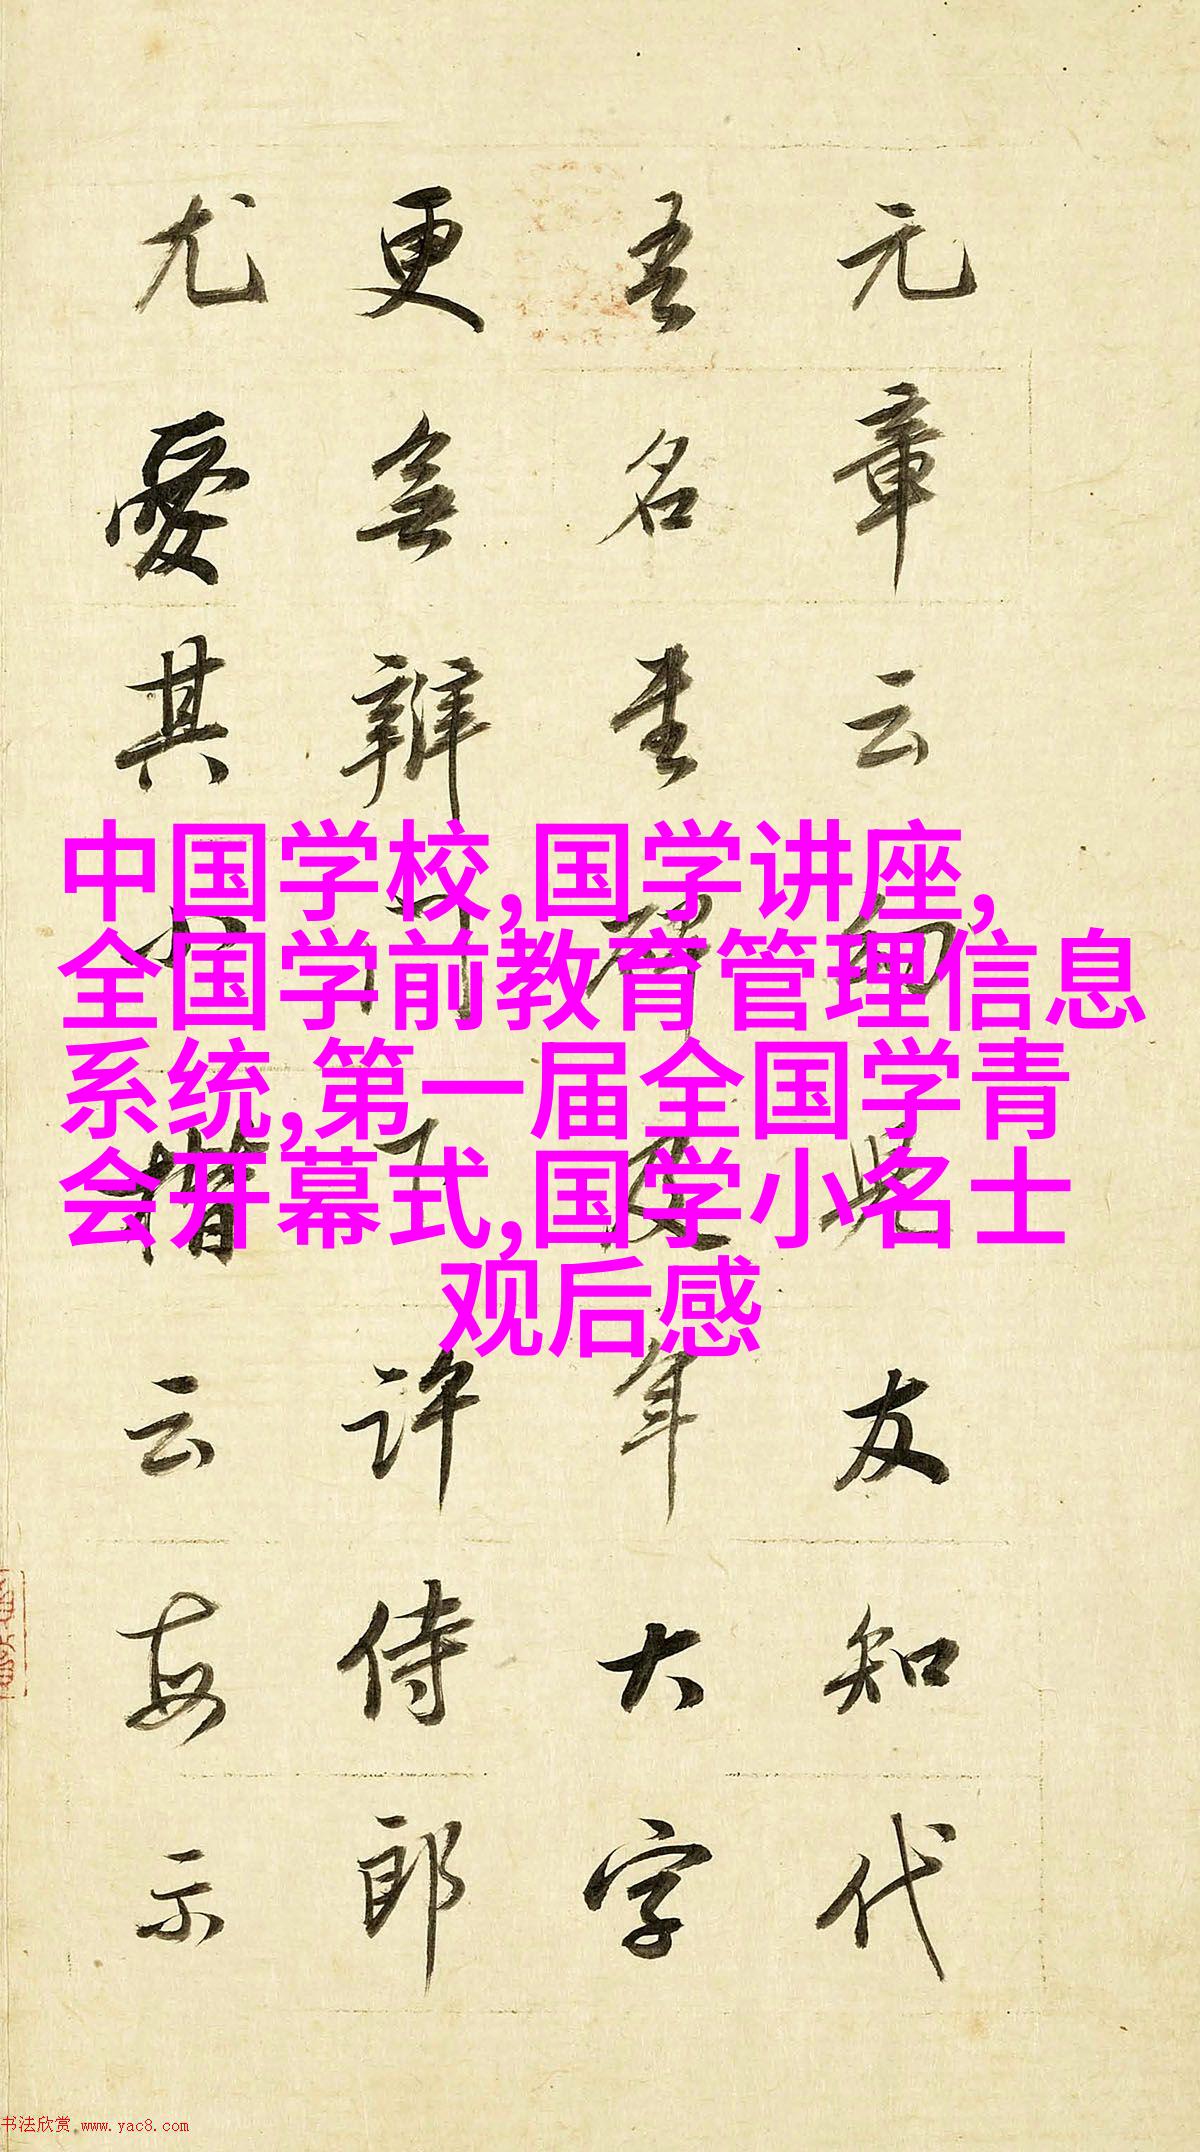 元章云幼兒友知代
吾名書碑及年大字
更無辨門下許侍郎
尤愛其小楷云每示
中国学校,国学讲座,
全国学前教育管理信息
系统,第一届全国学青
会开幕式,国学小名士
观后感
书法欣赏.www.yac8.com